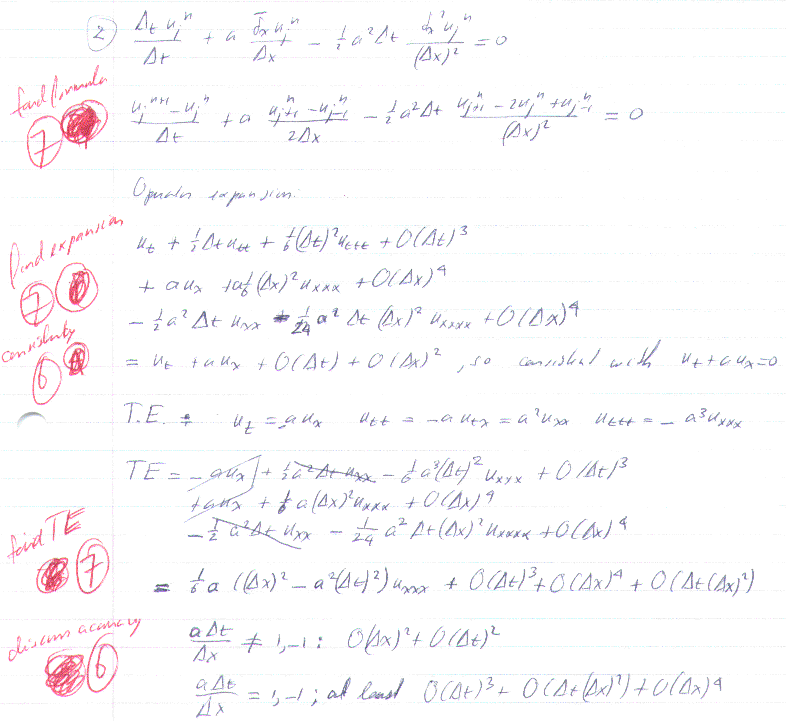 ② Δt uj^n / Δt + a δ̄x uj^n / Δx − ½ a² Δt δx² uj^n / (Δx)² = 0
find formula
⑦ (uj^{n+1} − uj^n) / Δt + a (u_{j+1}^n − u_{j−1}^n) / 2Δx − ½ a² Δt (u_{j+1}^n − 2uj^n + u_{j−1}^n) / (Δx)² = 0
Operator expansion:
find expansion
⑦ ut + ½ Δt utt + 1/6 (Δt)² uttt + O(Δt)³
+ a ux + a 1/6 (Δx)² uxxx + O(Δx)⁴
− ½ a² Δt uxx − 1/24 a² Δt (Δx)² uxxxx + O(Δx)⁴
consistency
⑥ = ut + a ux + O(Δt) + O(Δx)², so consistent with ut + a ux = 0
T.E. : ut = −a ux utt = −a utx = a² uxx uttt = − a³ uxxx
TE = − a ux + ½ a² Δt uxx − 1/6 a³ (Δt)² uxxx + O(Δt)³
+ a ux + 1/6 a (Δx)² uxxx + O(Δx)⁴
− ½ a² Δt uxx − 1/24 a² Δt (Δx)² uxxxx + O(Δx)⁴
find TE
⑦ = 1/6 a ((Δx)² − a² (Δt)²) uxxx + O(Δt)³ + O(Δx)⁴ + O(Δt (Δx)²)
discuss accuracy
⑥ aΔt / Δx ≠ 1, −1 : O(Δx)² + O(Δt)²
aΔt / Δx = 1, −1 ; at least O(Δt)³ + O(Δt (Δx)²) + O(Δx)⁴